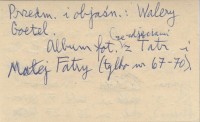 Przedm. i objaśn.: Walery
Goetel.
(ze zdjęciami
Album fot. z Tatr i
Małej Fatry (tylko nr 67-70).